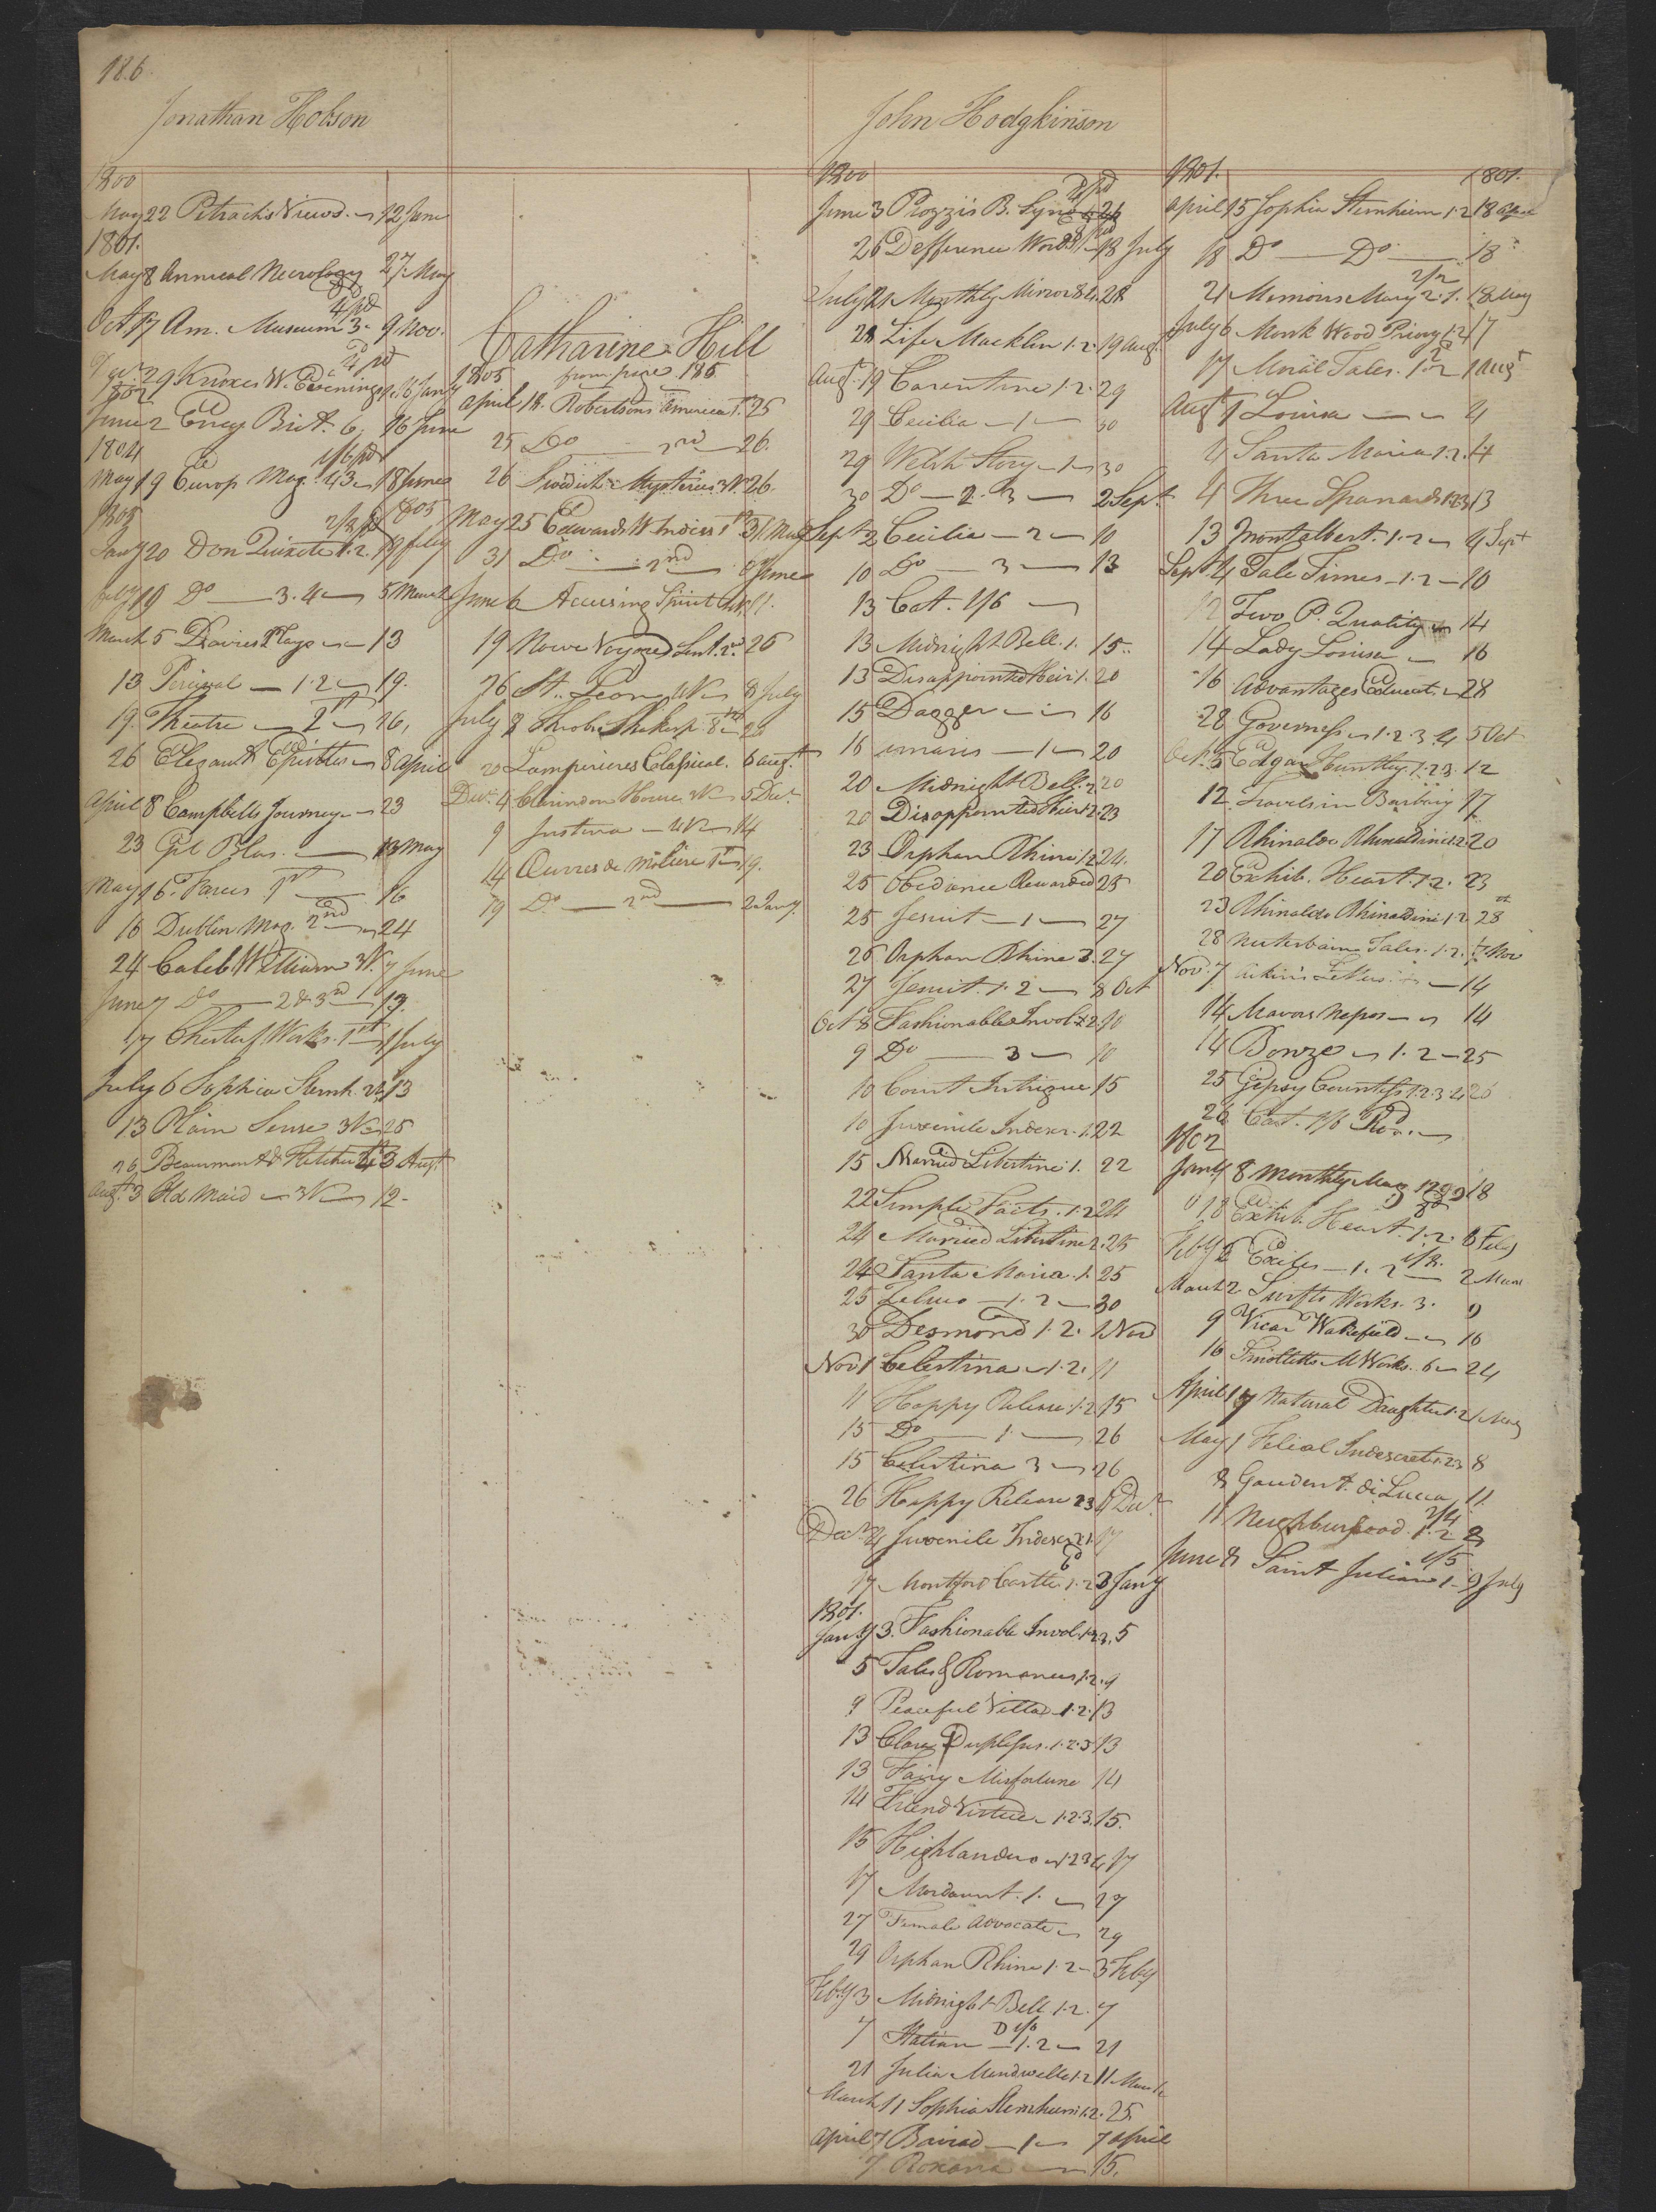 186
Jonathan Hobson
1800
May 22 Petrach's Views. 12 June
1801.
May 8 Annual Necrology 27 May
4/pd
Oct 17 Am. Museum 3. 9 Nov.
29 Knoxes W. Evenings 16 Jany
1802
June 2 Ency Brit. 6. 16 June
1804
1/6 pd
May 19 Europ Mag. 43. 18 June
1805 1805
2/3 pd
Jany 20 Don Quixote 1.2. 19 feby
feby 19 Do 3.4 5 March
March 5 Davies Plays 13
13 Percival 1.2 19.
19 Theatre 2 26,
26 Elegant Epistles 8 April
April 8 Campbells Journey 23
23 Gil Blas. 13 May
May 16. Farces 1st 16
16 Dublin Mag. 2nd 24
24 Caleb William 3V. 7 June
June 7 Do 2 & 3rd 17.
17 Chesterf Works. 1st 1 July
July 6 Sophia Sternh. 2V. 13
13 Plain Sense 3V 25
26 Beaumont & Fletcher 3 Augt
Augt. 3 Old Maid 3V 12.
Catharine Hill
from page 185
1805
April 18. Robertsons America 1st 25
25 Do 2nd 26.
26 Swedish Mysteries 3V. 26.
May 25 Edwards W Indies 1st 31 May
31 Do 2nd 6 June
June 6 Accusing Spirit 11.
19 Nowe Voyage Sent. 2d. 26
26 St. Leon 8 July
July 8 Shakesp. 8th 20
20 Lamperieres Classical. 6 Augt.
Decr. 4 Clarindon House 3V 5 Decr
9 Justina 2V 14
14 Œuvres de Moliere 1st 19.
19 Do 2nd 2 Jany.
John Hodgkinson
1800
June 3 Piozzi's B. Syno
26 Defference Words 18 July
July 12 Monthly Mirror 84. 28
28 Life Macklin 1.2. 19 Aug.
Augt. 19 Carentine 1.2. 29
29 Cecilia 1 30
29 Welsh Story 1 30
30 Do 2. 3 2 Sept.
Sept 2 Cecilia 2 10
10 Do 3 13
13 Cat. 1/6
13 Midnight Bell. 1. 15..
13 Disappointed Heir 1. 20
15 Dagger 16
16 1 20
20 Midnight Bell. 2 20
20 Disappointed Heir 2. 23
23 Orphan Rhine 1.2 24.
25 Obediance Rewarded 25
25 Jesuit 1 27
26 Orphan Rhine 3. 27
27 Jesuit. 1.2 8 Oct
Oct 8 Fashionable Invol. 1.2. 10
9 Do 3 10
10 Court Intrigue 15
10 Juvenile Indescr. 1. 22
15 Married Libertine 1. 22
22 Simple Facts. 1.2 24
24 Married Libertine 2. 25
24 Santa Maria. 1. 25
25 Zeluco 1.2 30
30 Desmond 1.2. 1 Nov
Nov 1 Celestina 1.2. 11
11 Happy Release 1.2 15
15 Do 1 26
15 Celestina 3 26
26 Happy Release 23 4 Decr
Decr 4 Juvenile Indescr 2. 17
17 Montford Castle 1.2 3 Jany
1801.
Jany 3. Fashionable Invol. 1.2.3. 5
5 Tales & Romances 1.2. 9
9 Peaceful Villa 1.2. 13
13 Clara Duplessis. 1.2.3 13
13 Fairy Misfortune 14
14 Friend Virtue 1.2.3. 15.
15 Highlanders 1.2 3 4 17
17 Mordaunt. 1. 27
27 Female Advocate 29
29 Orphan Rhine 1.2 3 Feby
Feby 3 Midnight Bell 1.2. 7
7 Italian 1.2 21
21 Julia Mandeville 1.2 11 March
March 11 Sophia Sternheim 1.2. 25
April 7 Baviad 1 7 April
7 Roxana 15.
1801. 1801.
April 15 Sophia Sternheim 1.2 18 April
18 Do Do 18
2/2
21 Memoirs Mary 2.1. 18 May
July 6 Monk Wood Priory 1.2 17
17 Moral Tales. 1.2 1 Augt
Augt 1 Louisa 4
4 Santa Maria 1.2. 4
4 Three Spaniards 1.2.3 13
13 Montalbert 1.2 4 Sept
Sept 4 Tale Times 1.2 10
12 Two P. Quality 14
14 Lady Louisa 16
16 Advantages Educat. 28
28 Governess 1.2.3.4 5 Oct
Oct. 5 Edgar Huntley. 1.2.3. 12
12 Travels in Barbary 17
17 Rhinaldo Rhinaldini 1.2 20
20 Exhib. Heart. 1.2. 23
23 Rhinaldo Rhinaldini 1.2 28
28 Neuterbaim Tales. 1.2. 7 Nov
Nov. 7 Aikins Letters. 14
14 Mavors Nepos 14
14 Bonze 1.2 25
25 Gipsy Countess 1.2.3.4 26
26 Cat. 1/6
1802
Jany 8 Monthly Mag. 18
18 Exhib. Heart. 1.2. 6 Feby
1/8.
Feby 6 Exiles 1.2 2 March
March 2 Swifts Works. 3. 9
9 Vicar Wakefield 16
16 Smolletts M Works. 6 24
April 17 Natural Daughter 1.2 1 May
May 1 Filial Indescret 1.2.3 8
8 Gaudent. di Lucca 11.
2/4
11 Neighburhood. 1.2 8
1/5
June 8 Saint Julian 1. 9 July